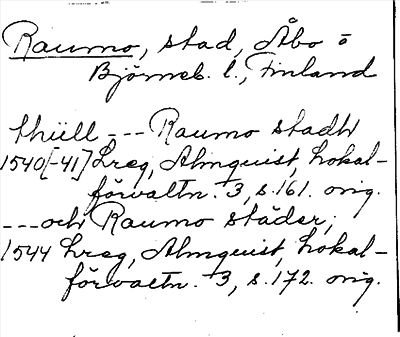 Raumo, stad, Åbo o
Björneb. l., Finland
thüll --- Raumo stadh
1540[-41] Lreg, Almquist, Lokal-
förvaltn. 3, s. 161. orig.
--- och Raumo städer;
1544 Lreg, Almquist, Lokal-
förvaltn. 3, s. 172. orig.